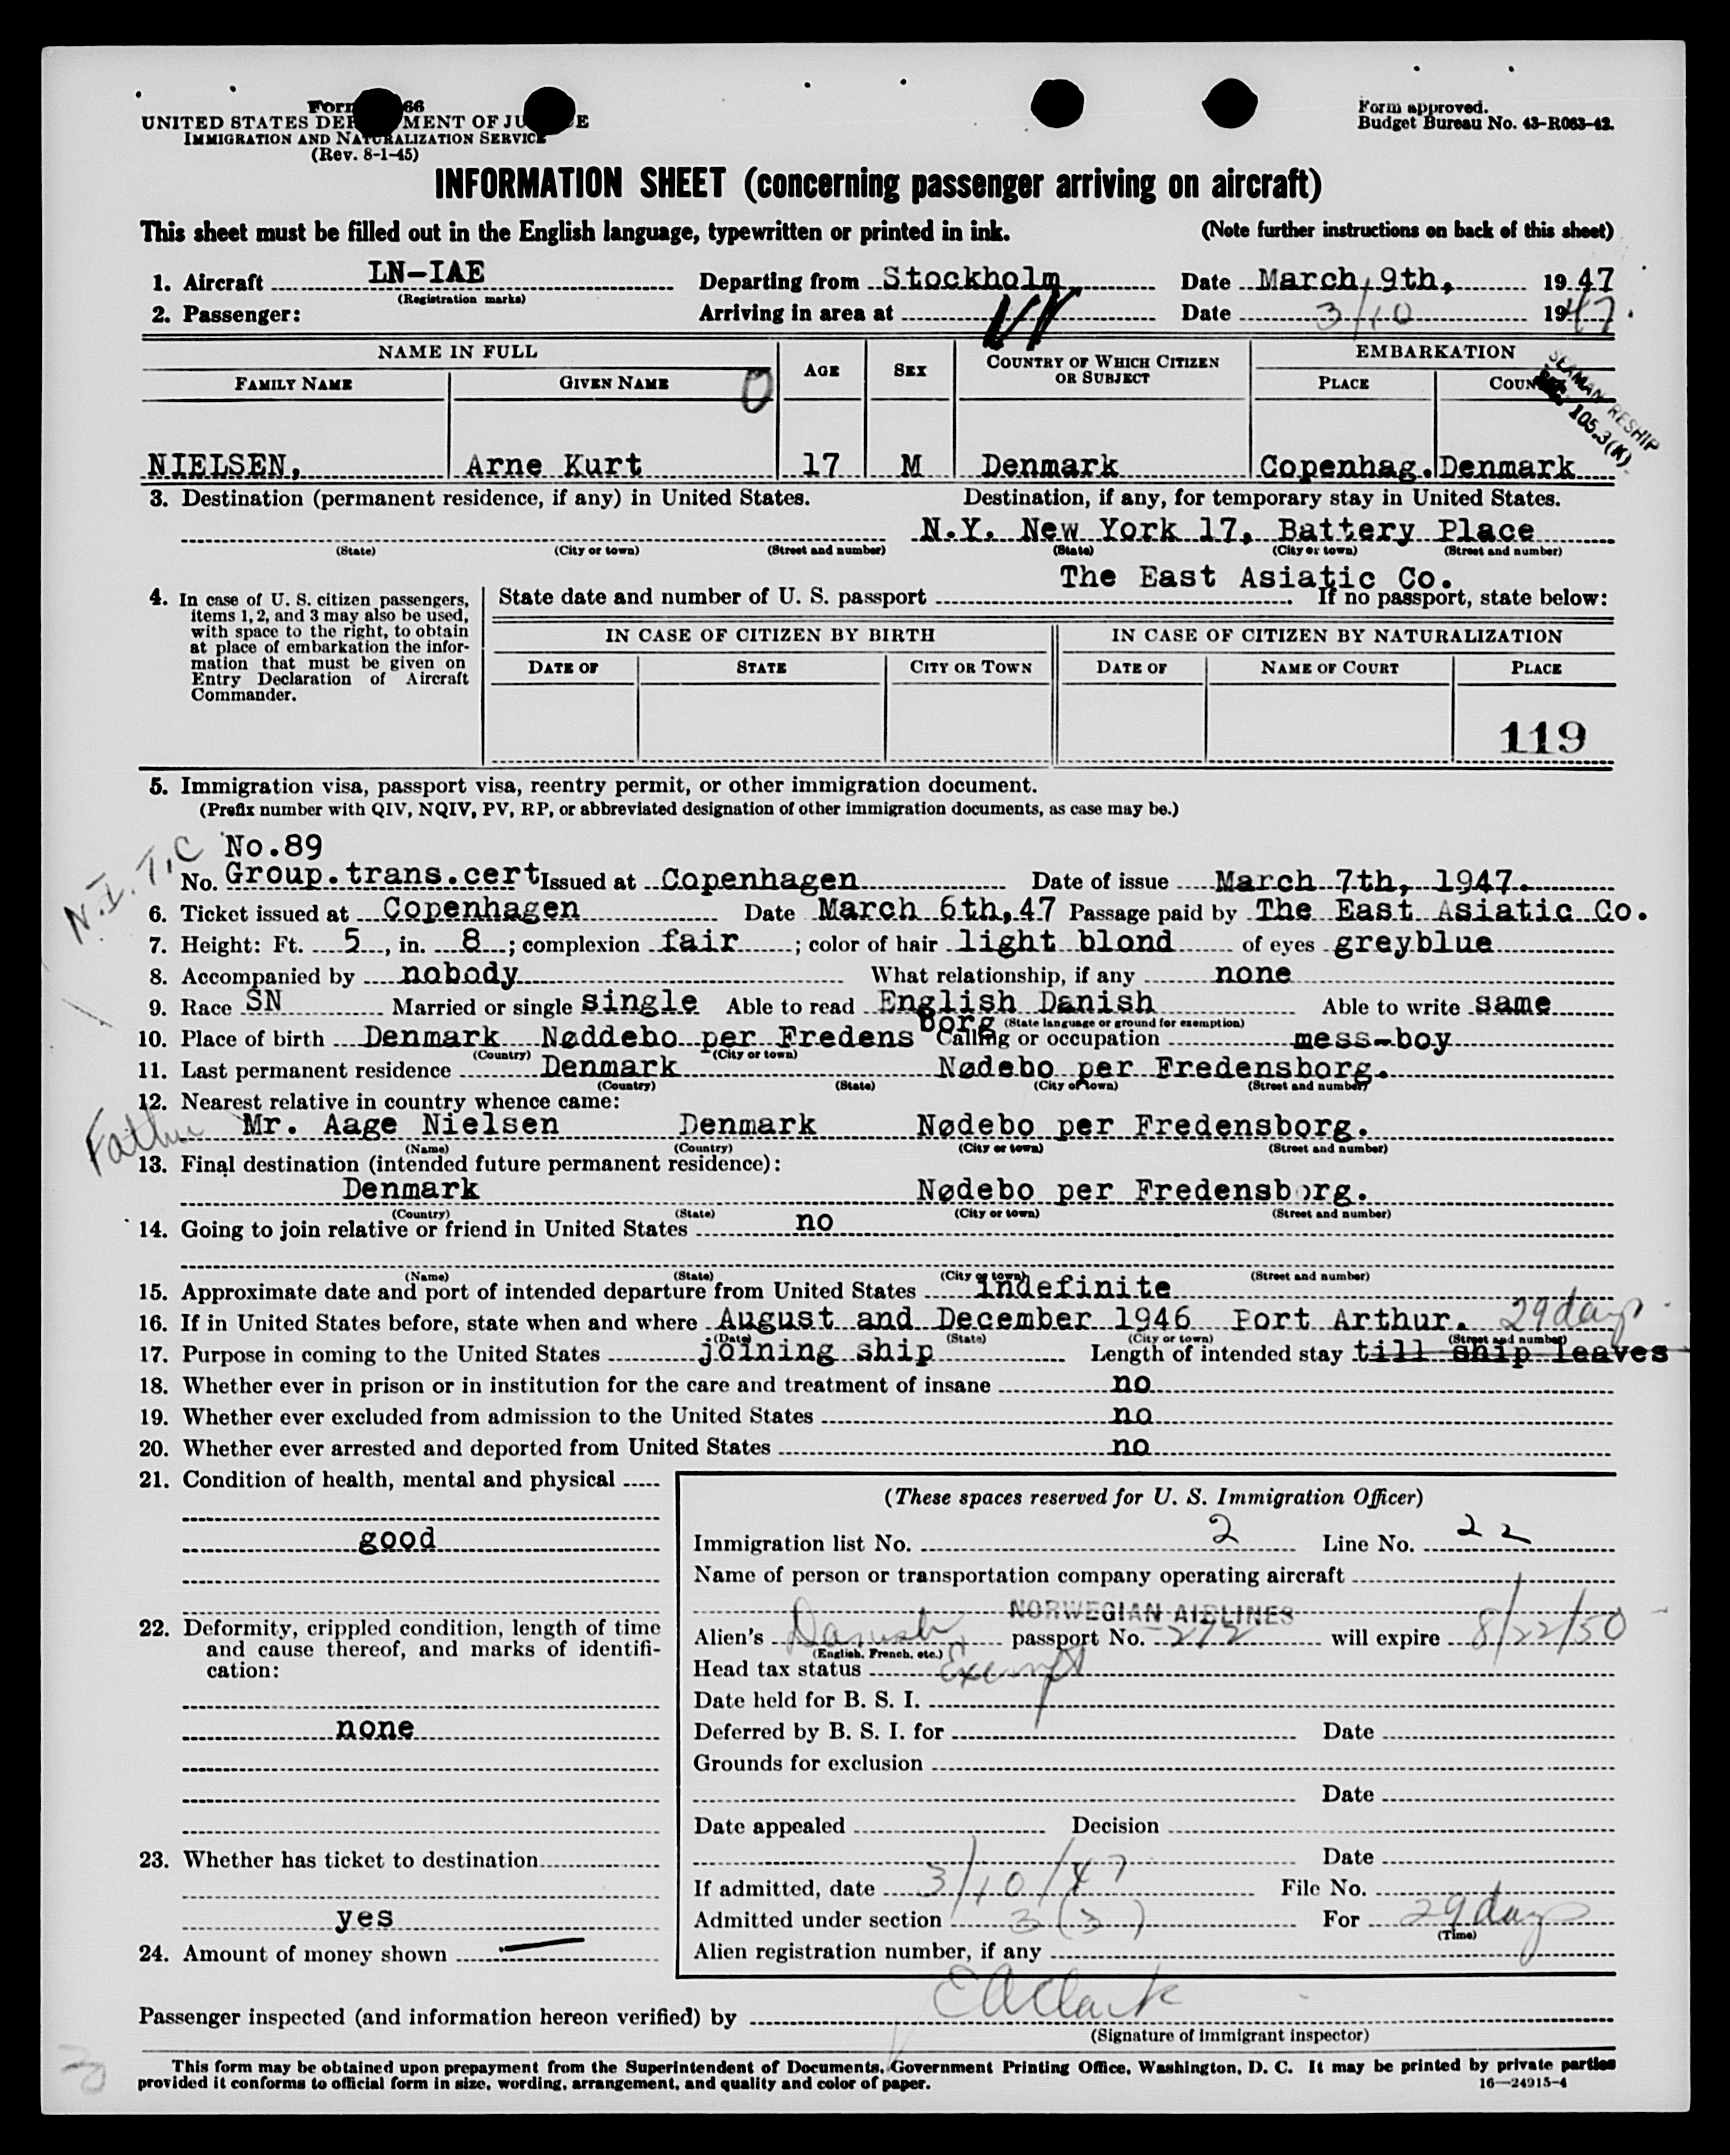 Form 66
UNITED STATES DEPARTMENT OF JUSTICE
IMMIGRATION AND NATURALIZATION SERVICE
(Rev. 8-1-45)
Form approved.
Budget Bureau No. 43-R063-42.
INFORMATION SHEET (concerning passenger arriving on aircraft)
This sheet must be filled out in the English language, typewritten or printed in ink. (Note further instructions on back of this sheet)
1. Aircraft LN-IAE Departing from Stockholm Date March, 9th, 1947
(Registration marks)
2. Passenger: Arriving in area at Date 3/10 1947.
NAME IN FULL AGE SEX COUNTRY OF WHICH CITIZEN OR SUBJECT EMBARKATION
FAMILY NAME GIVEN NAME 0 PLACE COUN
SEAMAN RESHIP
105.3(K)
NIELSEN, Arne Kurt 17 M Denmark Copenhag. Denmark
3. Destination (permanent residence, if any) in United States. Destination, if any, for temporary stay in United States.
N.Y. New York 17, Battery Place
(State) (City or town) (Street and number) (State) (City or town) (Street and number)
The East Asiatic Co.
4. In case of U. S. citizen passengers, items 1, 2, and 3 may also be used, with space to the right, to obtain at place of embarkation the information that must be given on Entry Declaration of Aircraft Commander.
State date and number of U. S. passport . If no passport, state below:
IN CASE OF CITIZEN BY BIRTH IN CASE OF CITIZEN BY NATURALIZATION
DATE OF STATE CITY OR TOWN DATE OF NAME OF COURT PLACE
119
5. Immigration visa, passport visa, reentry permit, or other immigration document.
(Prefix number with QIV, NQIV, PV, RP, or abbreviated designation of other immigration documents, as case may be.)
N.I.T.C
No.89
No. Group.trans.cert Issued at Copenhagen Date of issue March 7th, 1947.
6. Ticket issued at Copenhagen Date March 6th,47 Passage paid by The East Asiatic Co.
7. Height: Ft. 5, in. 8; complexion fair; color of hair light blond of eyes greyblue
8. Accompanied by nobody What relationship, if any none
9. Race SN Married or single single Able to read English Danish Able to write same
(State language or ground for exemption)
10. Place of birth Denmark Nøddebo per Fredens borg Calling or occupation mess-boy
(Country) (City or town)
11. Last permanent residence Denmark Nødebo per Fredensborg.
(Country) (State) (City or town) (Street and number)
12. Nearest relative in country whence came:
Father Mr. Aage Nielsen Denmark Nødebo per Fredensborg.
(Name) (Country) (City or town) (Street and number)
13. Final destination (intended future permanent residence):
Denmark Nødebo per Fredensborg.
(Country) (State) (City or town) (Street and number)
14. Going to join relative or friend in United States no
(Name) (State) (City or town) (Street and number)
15. Approximate date and port of intended departure from United States indefinite
16. If in United States before, state when and where August and December 1946 Port Arthur. 29 days
(Date) (State) (City or town) (Street and number)
17. Purpose in coming to the United States joining ship Length of intended stay till ship leaves
18. Whether ever in prison or in institution for the care and treatment of insane no
19. Whether ever excluded from admission to the United States no
20. Whether ever arrested and deported from United States no
21. Condition of health, mental and physical
good
22. Deformity, crippled condition, length of time and cause thereof, and marks of identification:
none
23. Whether has ticket to destination
yes
24. Amount of money shown —
(These spaces reserved for U. S. Immigration Officer)
Immigration list No. 2 Line No. 22
Name of person or transportation company operating aircraft
NORWEGIAN AIRLINES
Alien's Danish passport No. 272 will expire 8/22/50
(English, French, etc.)
Head tax status Exempt
Date held for B. S. I.
Deferred by B. S. I. for Date
Grounds for exclusion
Date
Date appealed Decision
Date
If admitted, date 3/10/47 File No.
Admitted under section 3(3) For 29 days
(Time)
Alien registration number, if any
Passenger inspected (and information hereon verified) by EAClark
(Signature of immigrant inspector)
This form may be obtained upon prepayment from the Superintendent of Documents, Government Printing Office, Washington, D. C. It may be printed by private parties
provided it conforms to official form in size, wording, arrangement, and quality and color of paper.
16—24915-4
3